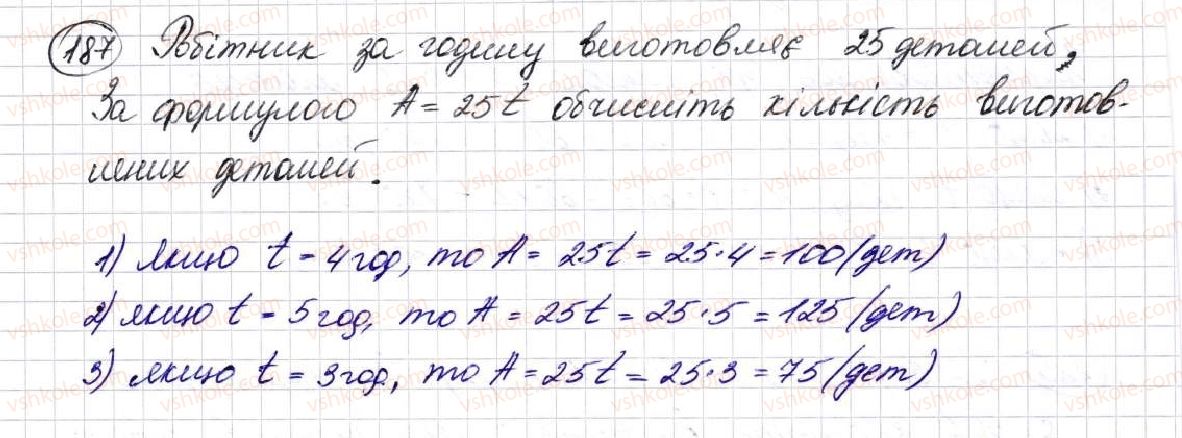 187 Робітник за годину виготовляє 25 деталей,
За формулою A = 25t обчисліть кількість виготов-
лених деталей.
1) якщо t = 4 год, то A = 25t = 25·4 = 100 (дет)
2) якщо t = 5 год, то A = 25t = 25·5 = 125 (дет)
3) якщо t = 3 год, то A = 25t = 25·3 = 75 (дет)
vshkole.com